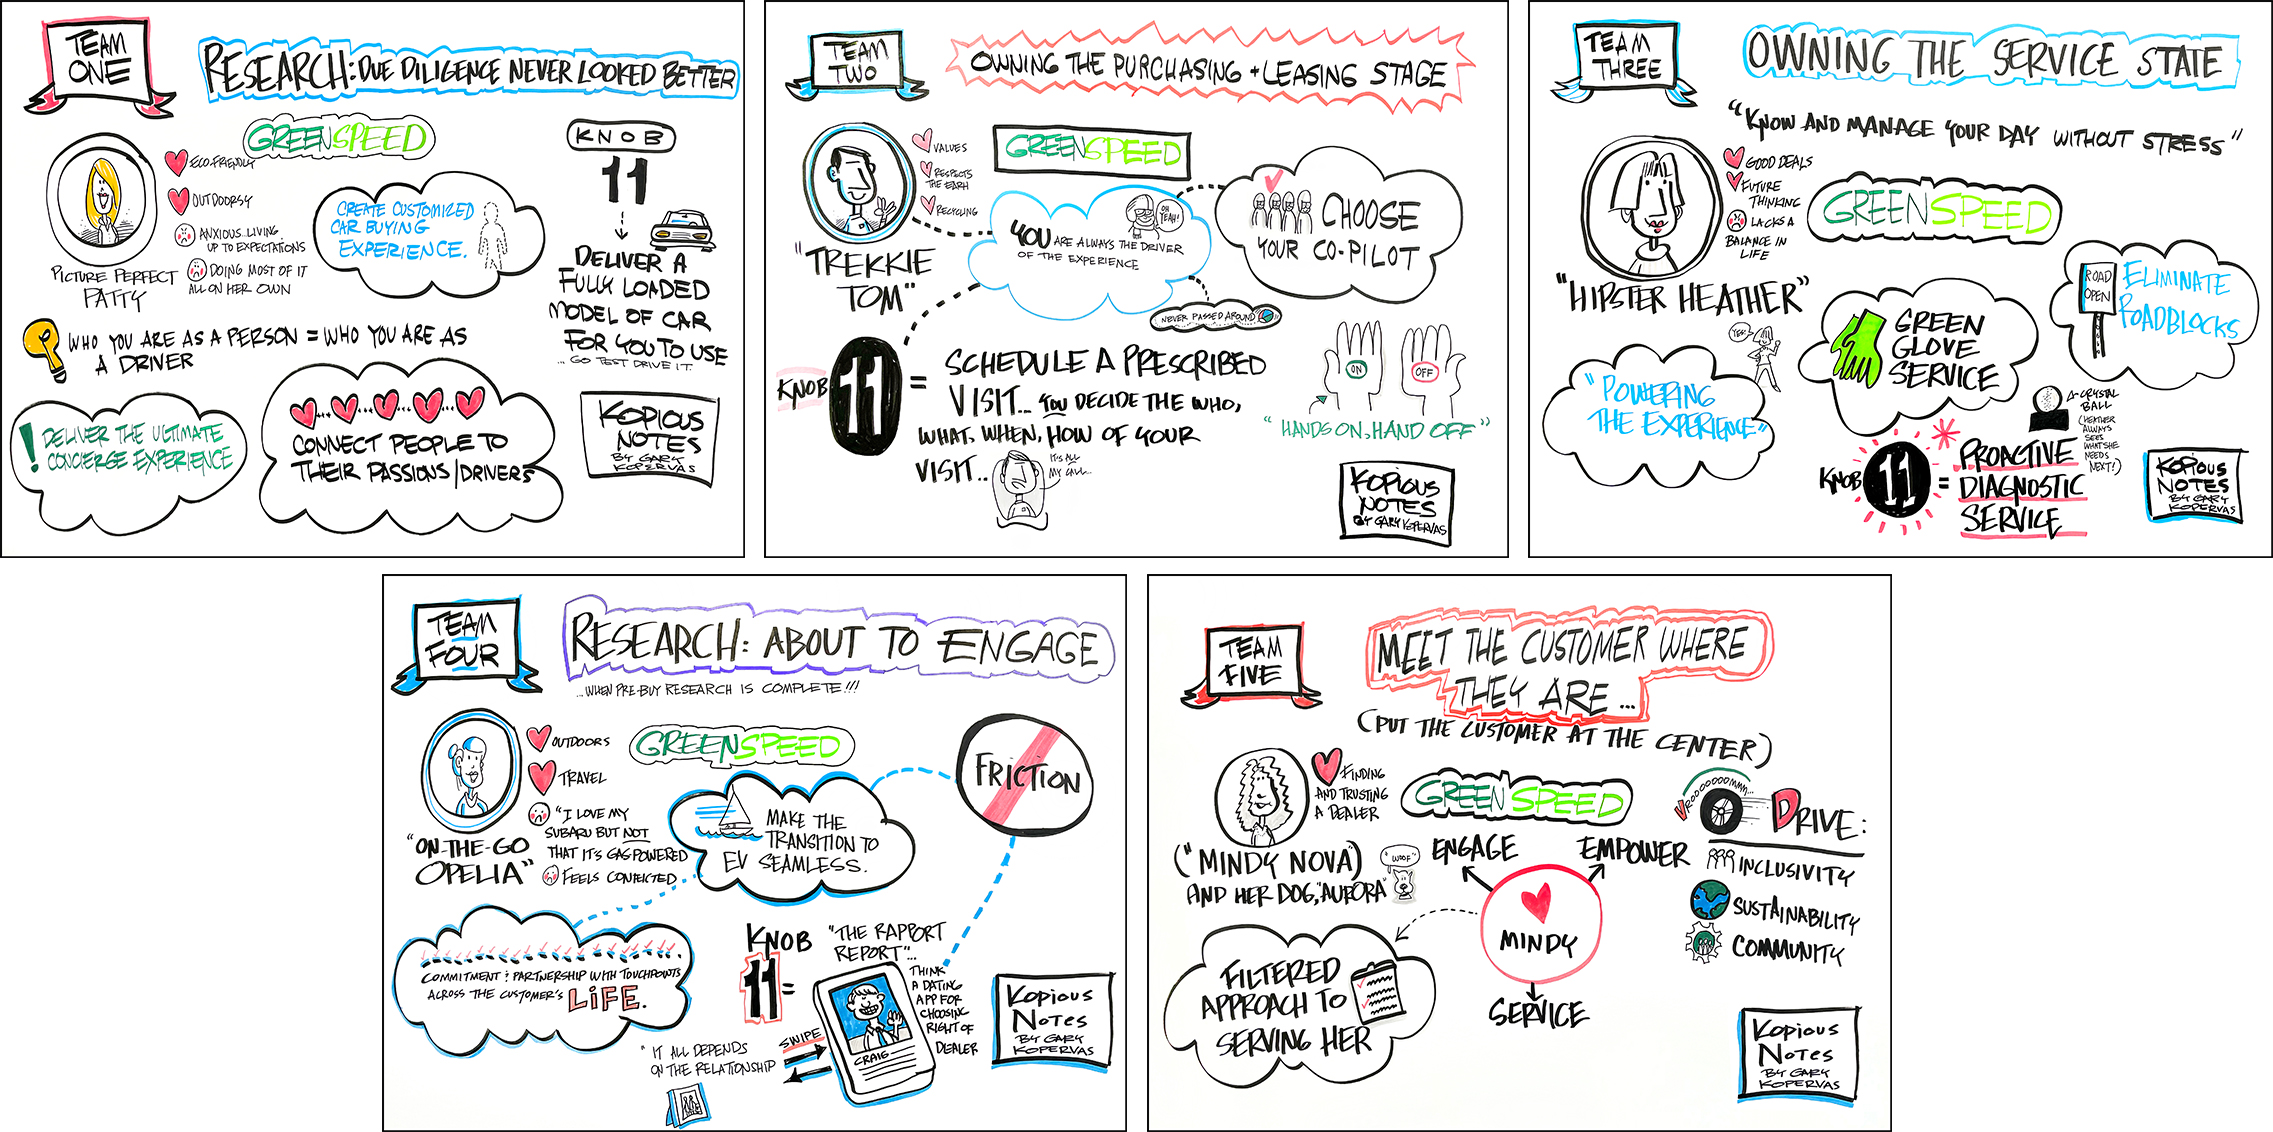 TEAM
ONE
RESEARCH: DUE DILIGENCE NEVER LOOKED BETTER
GREENSPEED
ECO-FRIENDLY
OUTDOORSY
ANXIOUS...LIVING
UP TO EXPECTATIONS
DOING MOST OF IT
ALL ON HER OWN
PICTURE PERFECT
PATTY
CREATE CUSTOMIZED
CAR BUYING
EXPERIENCE.
KNOB
11
DELIVER A
FULLY LOADED
MODEL OF CAR
FOR YOU TO USE
...GO TEST DRIVE IT.
WHO YOU ARE AS A PERSON = WHO YOU ARE AS
A DRIVER
! DELIVER THE ULTIMATE
CONCIERGE EXPERIENCE
CONNECT PEOPLE TO
THEIR PASSIONS/DRIVERS
KOPIOUS
NOTES
BY GARY
KOPERVAS
TEAM
TWO
OWNING THE PURCHASING + LEASING STAGE
VALUES
RESPECTS
THE EARTH
RECYCLING
"TREKKIE
TOM"
GREENSPEED
OH
YEAH!
YOU ARE ALWAYS THE DRIVER
OF THE EXPERIENCE
CHOOSE
YOUR CO-PILOT
NEVER PASSED AROUND
KNOB 11 =
SCHEDULE A PRESCRIBED
VISIT... YOU DECIDE THE WHO,
WHAT, WHEN, HOW OF YOUR
VISIT..
IT'S ALL
MY CALL...
ON
OFF
"HANDS ON, HAND OFF"
KOPIOUS
NOTES
BY GARY KOPERVAS
TEAM
THREE
OWNING THE SERVICE STATE
"KNOW AND MANAGE YOUR DAY WITHOUT STRESS"
GOOD DEALS
FUTURE
THINKING
LACKS A
BALANCE IN
LIFE
"HIPSTER HEATHER"
GREENSPEED
"POWERING
THE EXPERIENCE"
GREEN
GLOVE
SERVICE
ROAD
OPEN
ELIMINATE
ROADBLOCKS
CRYSTAL
BALL
(HEATHER
ALWAYS
SEES
WHAT SHE
NEEDS
NEXT!)
KNOB 11 =
PROACTIVE
DIAGNOSTIC
SERVICE
KOPIOUS
NOTES
BY GARY
KOPERVAS
TEAM
FOUR
RESEARCH: ABOUT TO ENGAGE
...WHEN PRE-BUY RESEARCH IS COMPLETE!!!
OUTDOORS
TRAVEL
"I LOVE MY
SUBARU BUT NOT
THAT IT'S GAS POWERED
FEELS CONFLICTED
"ON-THE-GO
OPELIA"
GREENSPEED
MAKE THE
TRANSITION TO
EV SEAMLESS.
FRICTION
COMMITMENT & PARTNERSHIP WITH TOUCHPOINTS
ACROSS THE CUSTOMER'S LIFE.
KNOB
11 =
"THE RAPPORT
REPORT"...
THINK
A DATING
APP FOR
CHOOSING
RIGHT OF
DEALER
CRAIG
SWIPE
"IT ALL DEPENDS
ON THE RELATIONSHIP
KOPIOUS
NOTES
BY GARY
KOPERVAS
TEAM
FIVE
MEET THE CUSTOMER WHERE
THEY ARE...
(PUT THE CUSTOMER AT THE CENTER)
FINDING
AND TRUSTING
A DEALER
("MINDY NOVA")
AND HER DOG, "AURORA"
"WOOF"
GREENSPEED
ENGAGE
EMPOWER
MINDY
SERVICE
FILTERED
APPROACH TO
SERVING HER
VROOOOOOMMM...
DRIVE:
INCLUSIVITY
SUSTAINABILITY
COMMUNITY
KOPIOUS
NOTES
BY GARY
KOPERVAS